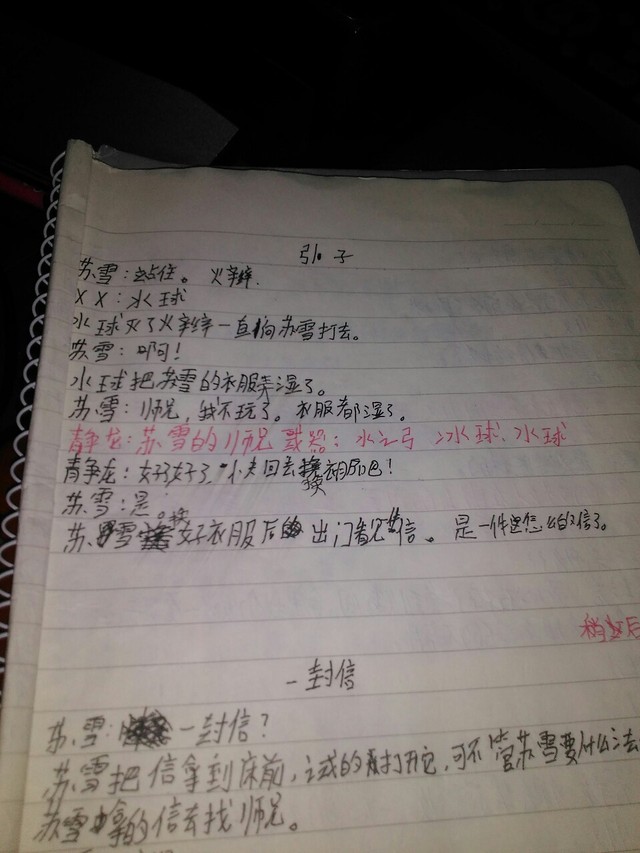 引子
苏雪：站住。火辫.
XX：水球
水球灭了火辫一直向苏雪打去。
苏雪：啊！
水球把苏雪的衣服弄湿了。
苏雪：师兄，我不玩了。衣服都湿了。
青争龙：苏雪的师兄 武器：水之弓 冰球、水球
青争龙：好了好了，小 回去换衣服吧！
苏雪：是。
苏雪换好衣服后出门看见 信。是一件 信了。
稍 后
一封信
苏雪：一封信？
苏雪把信拿到床前， 的 打开它，可不管苏雪要什么
苏雪拿的信去找师兄。